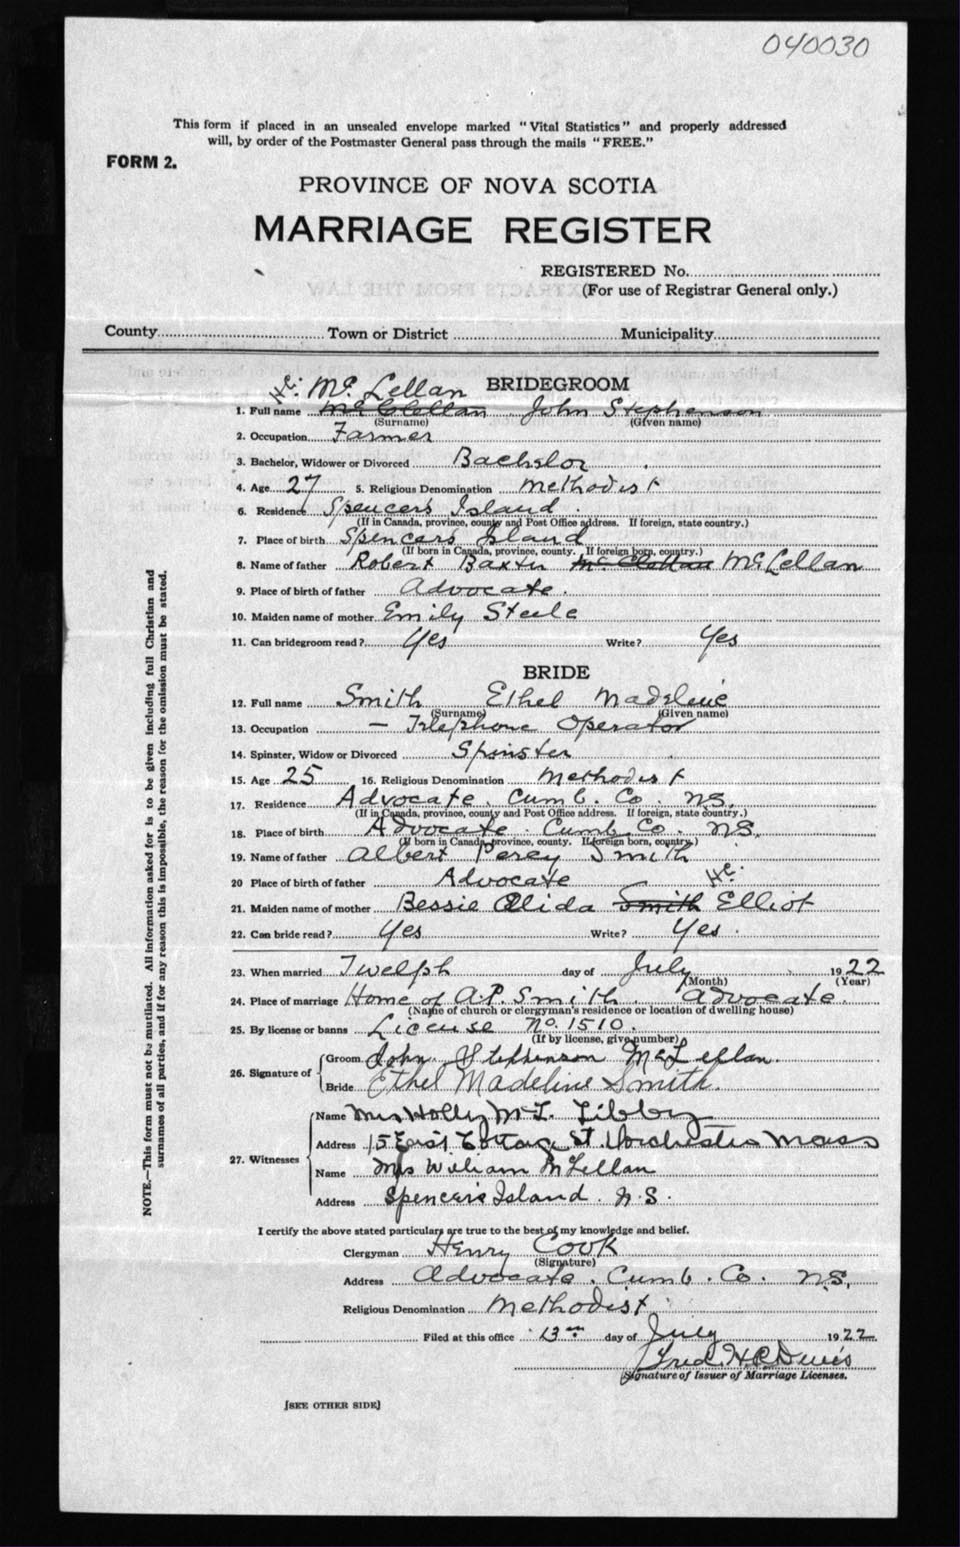 040030
This form if placed in an unsealed envelope marked "Vital Statistics" and properly addressed
will, by order of the Postmaster General pass through the mails "FREE."
FORM 2.
PROVINCE OF NOVA SCOTIA
MARRIAGE REGISTER
REGISTERED No.
(For use of Registrar General only.)
County Town or District Municipality
BRIDEGROOM
H.C. Mc Lellan
1. Full name Mc Clellan John Stephenson
(Surname) (Given name)
2. Occupation Farmer
3. Bachelor, Widower or Divorced Bachelor
4. Age 27 5. Religious Denomination Methodist
6. Residence Spencers Island.
(If in Canada, province, county and Post Office address. If foreign, state country.)
7. Place of birth Spencers Island
(If born in Canada, province, county. If foreign born, country.)
8. Name of father Robert Baxter Mc Clellan McLellan
9. Place of birth of father Advocate.
10. Maiden name of mother Emily Steele
11. Can bridegroom read? Yes Write? Yes
BRIDE
12. Full name Smith Ethel Madeline
(Surname) (Given name)
13. Occupation — Telephone Operator
14. Spinster, Widow or Divorced Spinster
15. Age 25 16. Religious Denomination Methodist
17. Residence Advocate. Cumb. Co. N.S.
(If in Canada, province, county and Post Office address. If foreign, state country.)
18. Place of birth Advocate. Cumb. Co. N.S.
(If born in Canada, province, county. If foreign born, country.)
19. Name of father Albert Percy Smith
20 Place of birth of father Advocate H.C.
21. Maiden name of mother Bessie Alida Smith Elliot
22. Can bride read? Yes Write? Yes.
23. When married Twelph day of July 1922
(Month) (Year)
24. Place of marriage Home of A.P. Smith. Advocate.
(Name of church or clergyman's residence or location of dwelling house)
25. By license or banns License No. 1510.
(If by license, give number)
26. Signature of Groom John Stephenson McLellan.
Bride Ethel Madeline Smith.
27. Witnesses Name Mrs Holly McL. Libby
Address 15 East Cottage St. Dorchester Mass
Name Mrs William McLellan
Address Spencer's Island. N.S.
I certify the above stated particulars are true to the best of my knowledge and belief.
Clergyman Henry Cook
(Signature)
Address Advocate. Cumb. Co. N.S.
Religious Denomination Methodist
Filed at this office 13th day of July 1922
Fred. H.
Signature of Issuer of Marriage Licenses.
[SEE OTHER SIDE]
NOTE.—This form must not be mutilated. All information asked for is to be given including full Christian and
surnames of all parties, and if for any reason this is impossible, the reason for the omission must be stated.